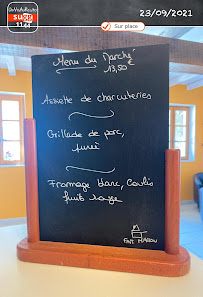 23/09/2021
Sur place
Menu du Marché
13,50€
Assiette de charcuteries
Grillade de porc,
purée
Fromage blanc, Coulis
fruits rouge
FAIT MAISON